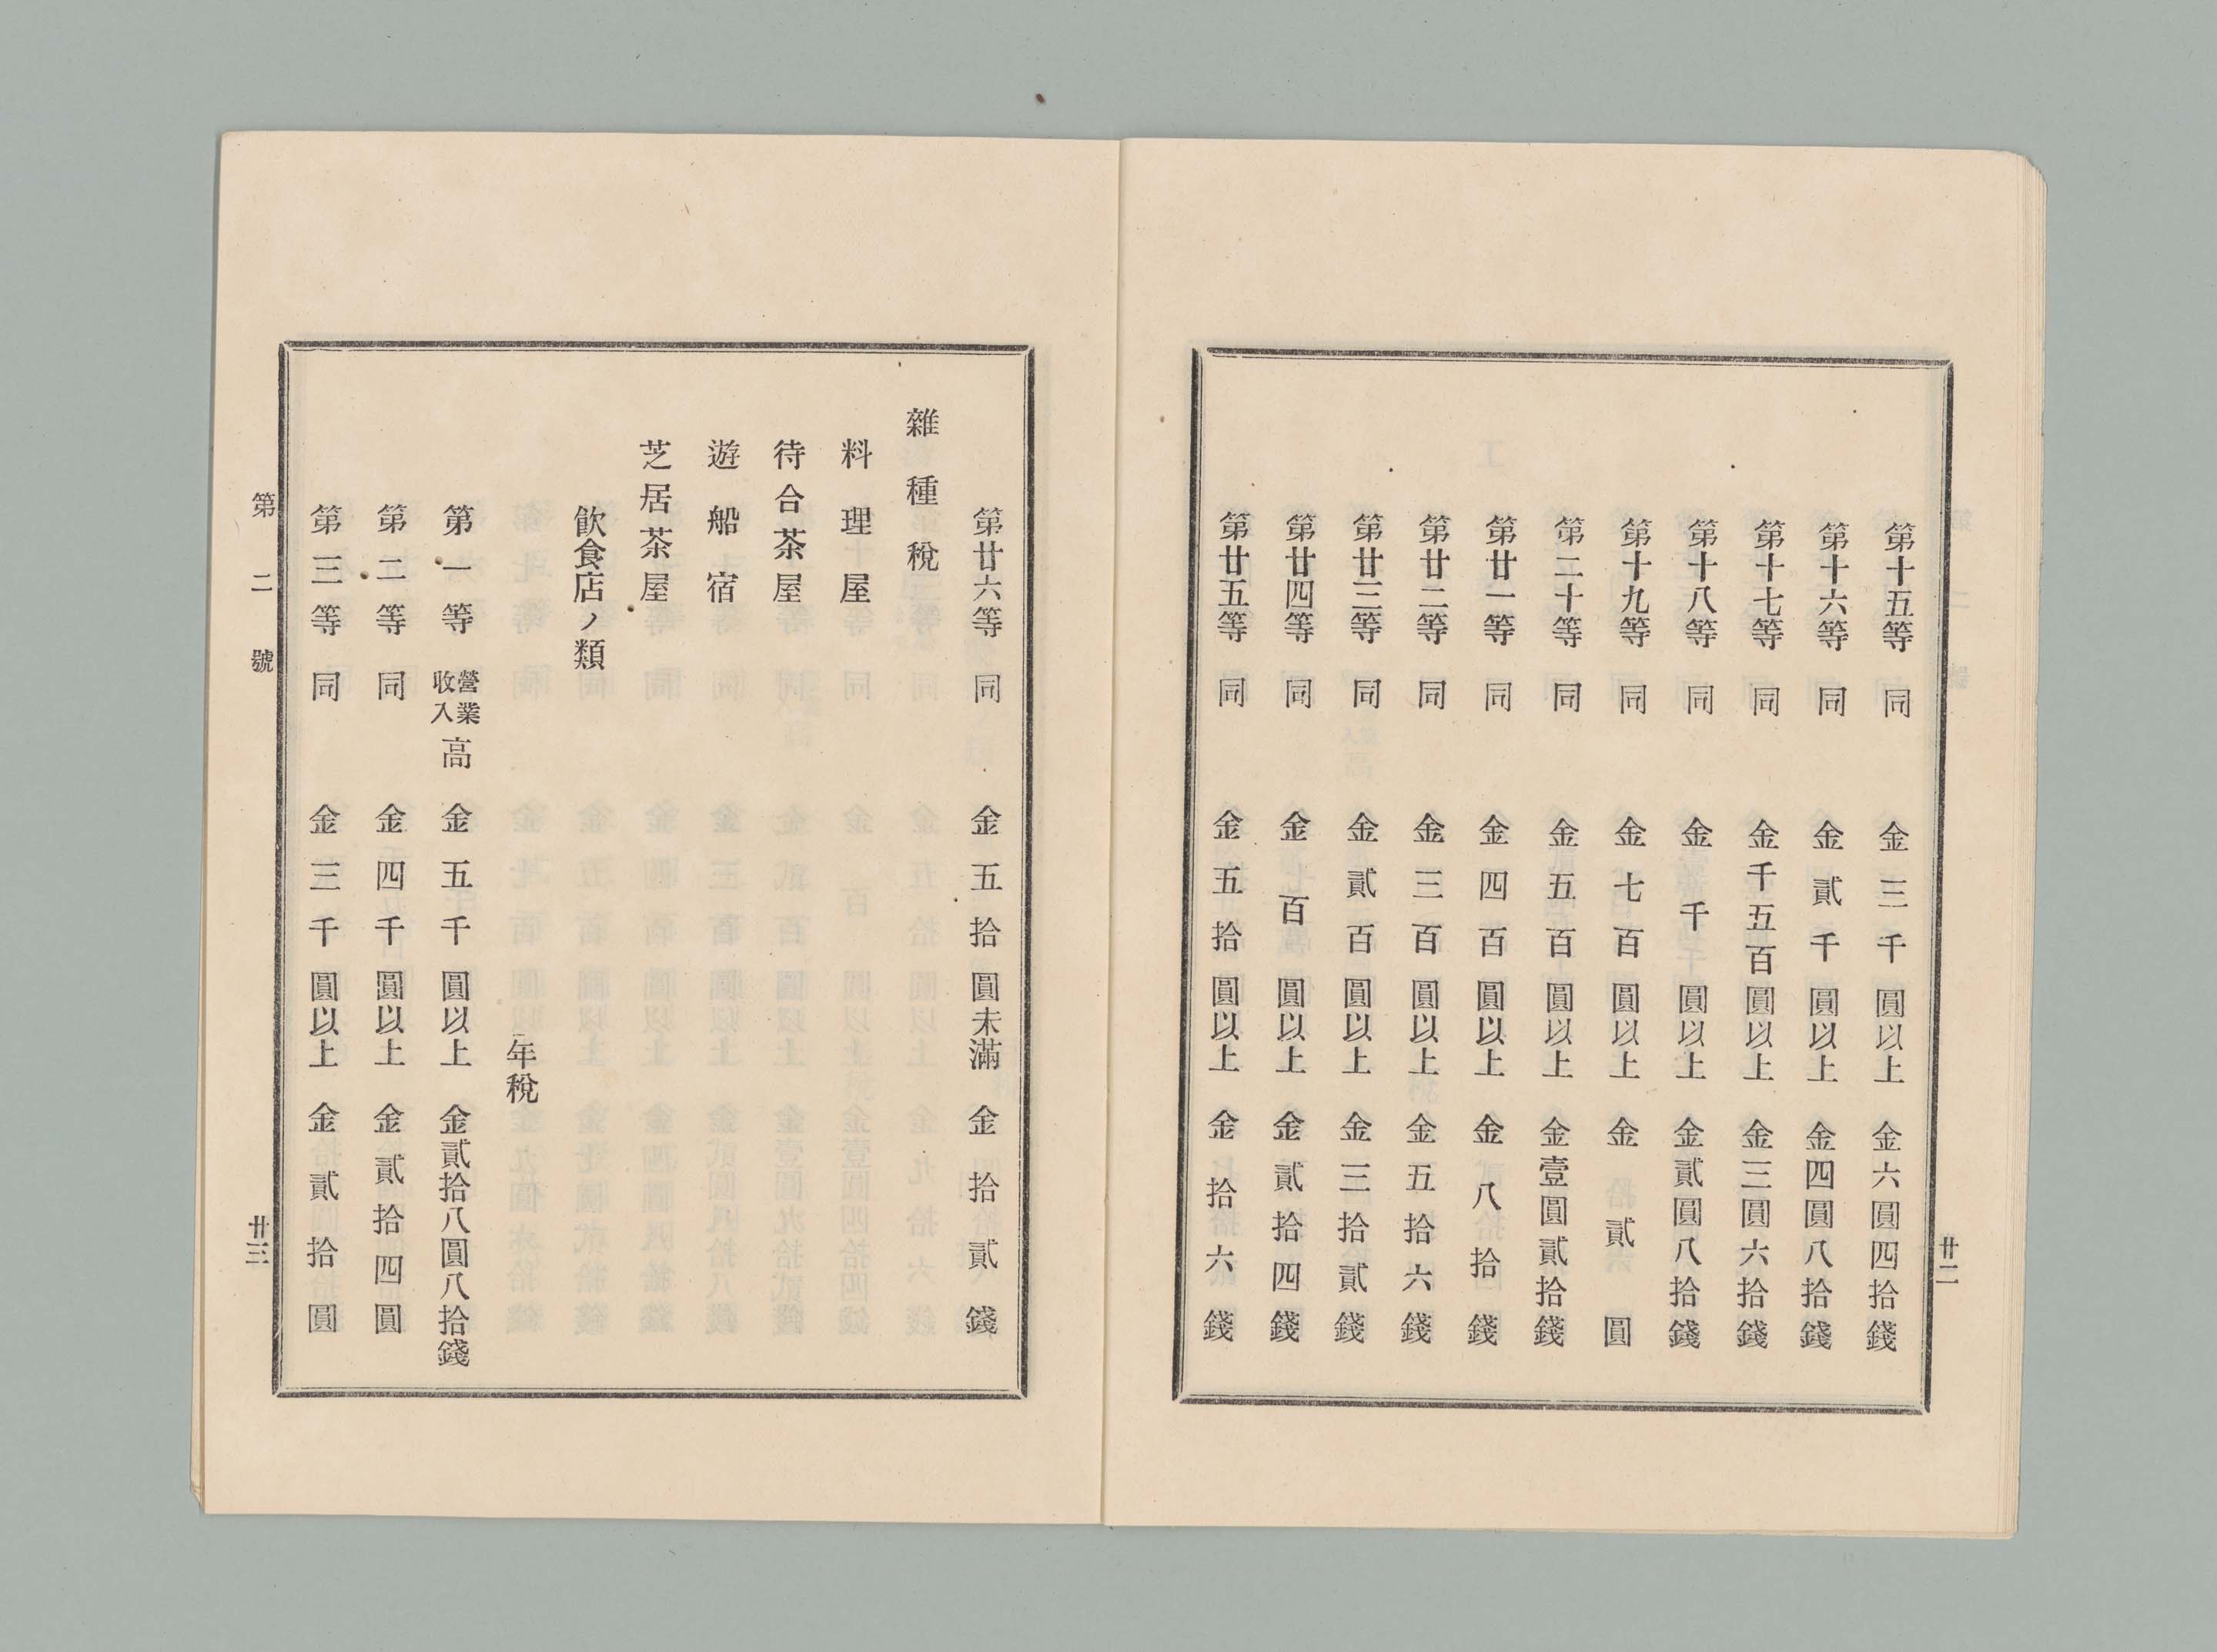 第十五等 同 金三千圓以上 金六圓四拾錢
第十六等 同 金貳千圓以上 金四圓八拾錢
第十七等 同 金千五百圓以上 金三圓六拾錢
第十八等 同 金千圓以上 金貳圓八拾錢
第十九等 同 金七百圓以上 金貳圓
第二十等 同 金五百圓以上 金壹圓貳拾錢
第廿一等 同 金四百圓以上 金八拾錢
第廿二等 同 金三百圓以上 金五拾六錢
第廿三等 同 金貳百圓以上 金三拾貳錢
第廿四等 同 金百圓以上 金貳拾四錢
第廿五等 同 金五拾圓以上 金拾六錢
廿二
第廿六等 同 金五拾圓未滿 金拾貳錢
雜種稅
料理屋
待合茶屋
遊船宿
芝居茶屋
飮食店ノ類
年稅
第一等 營業收入高 金五千圓以上 金貳拾八圓八拾錢
第二等 同 金四千圓以上 金貳拾四圓
第三等 同 金三千圓以上 金貳拾圓
第二號 廿三